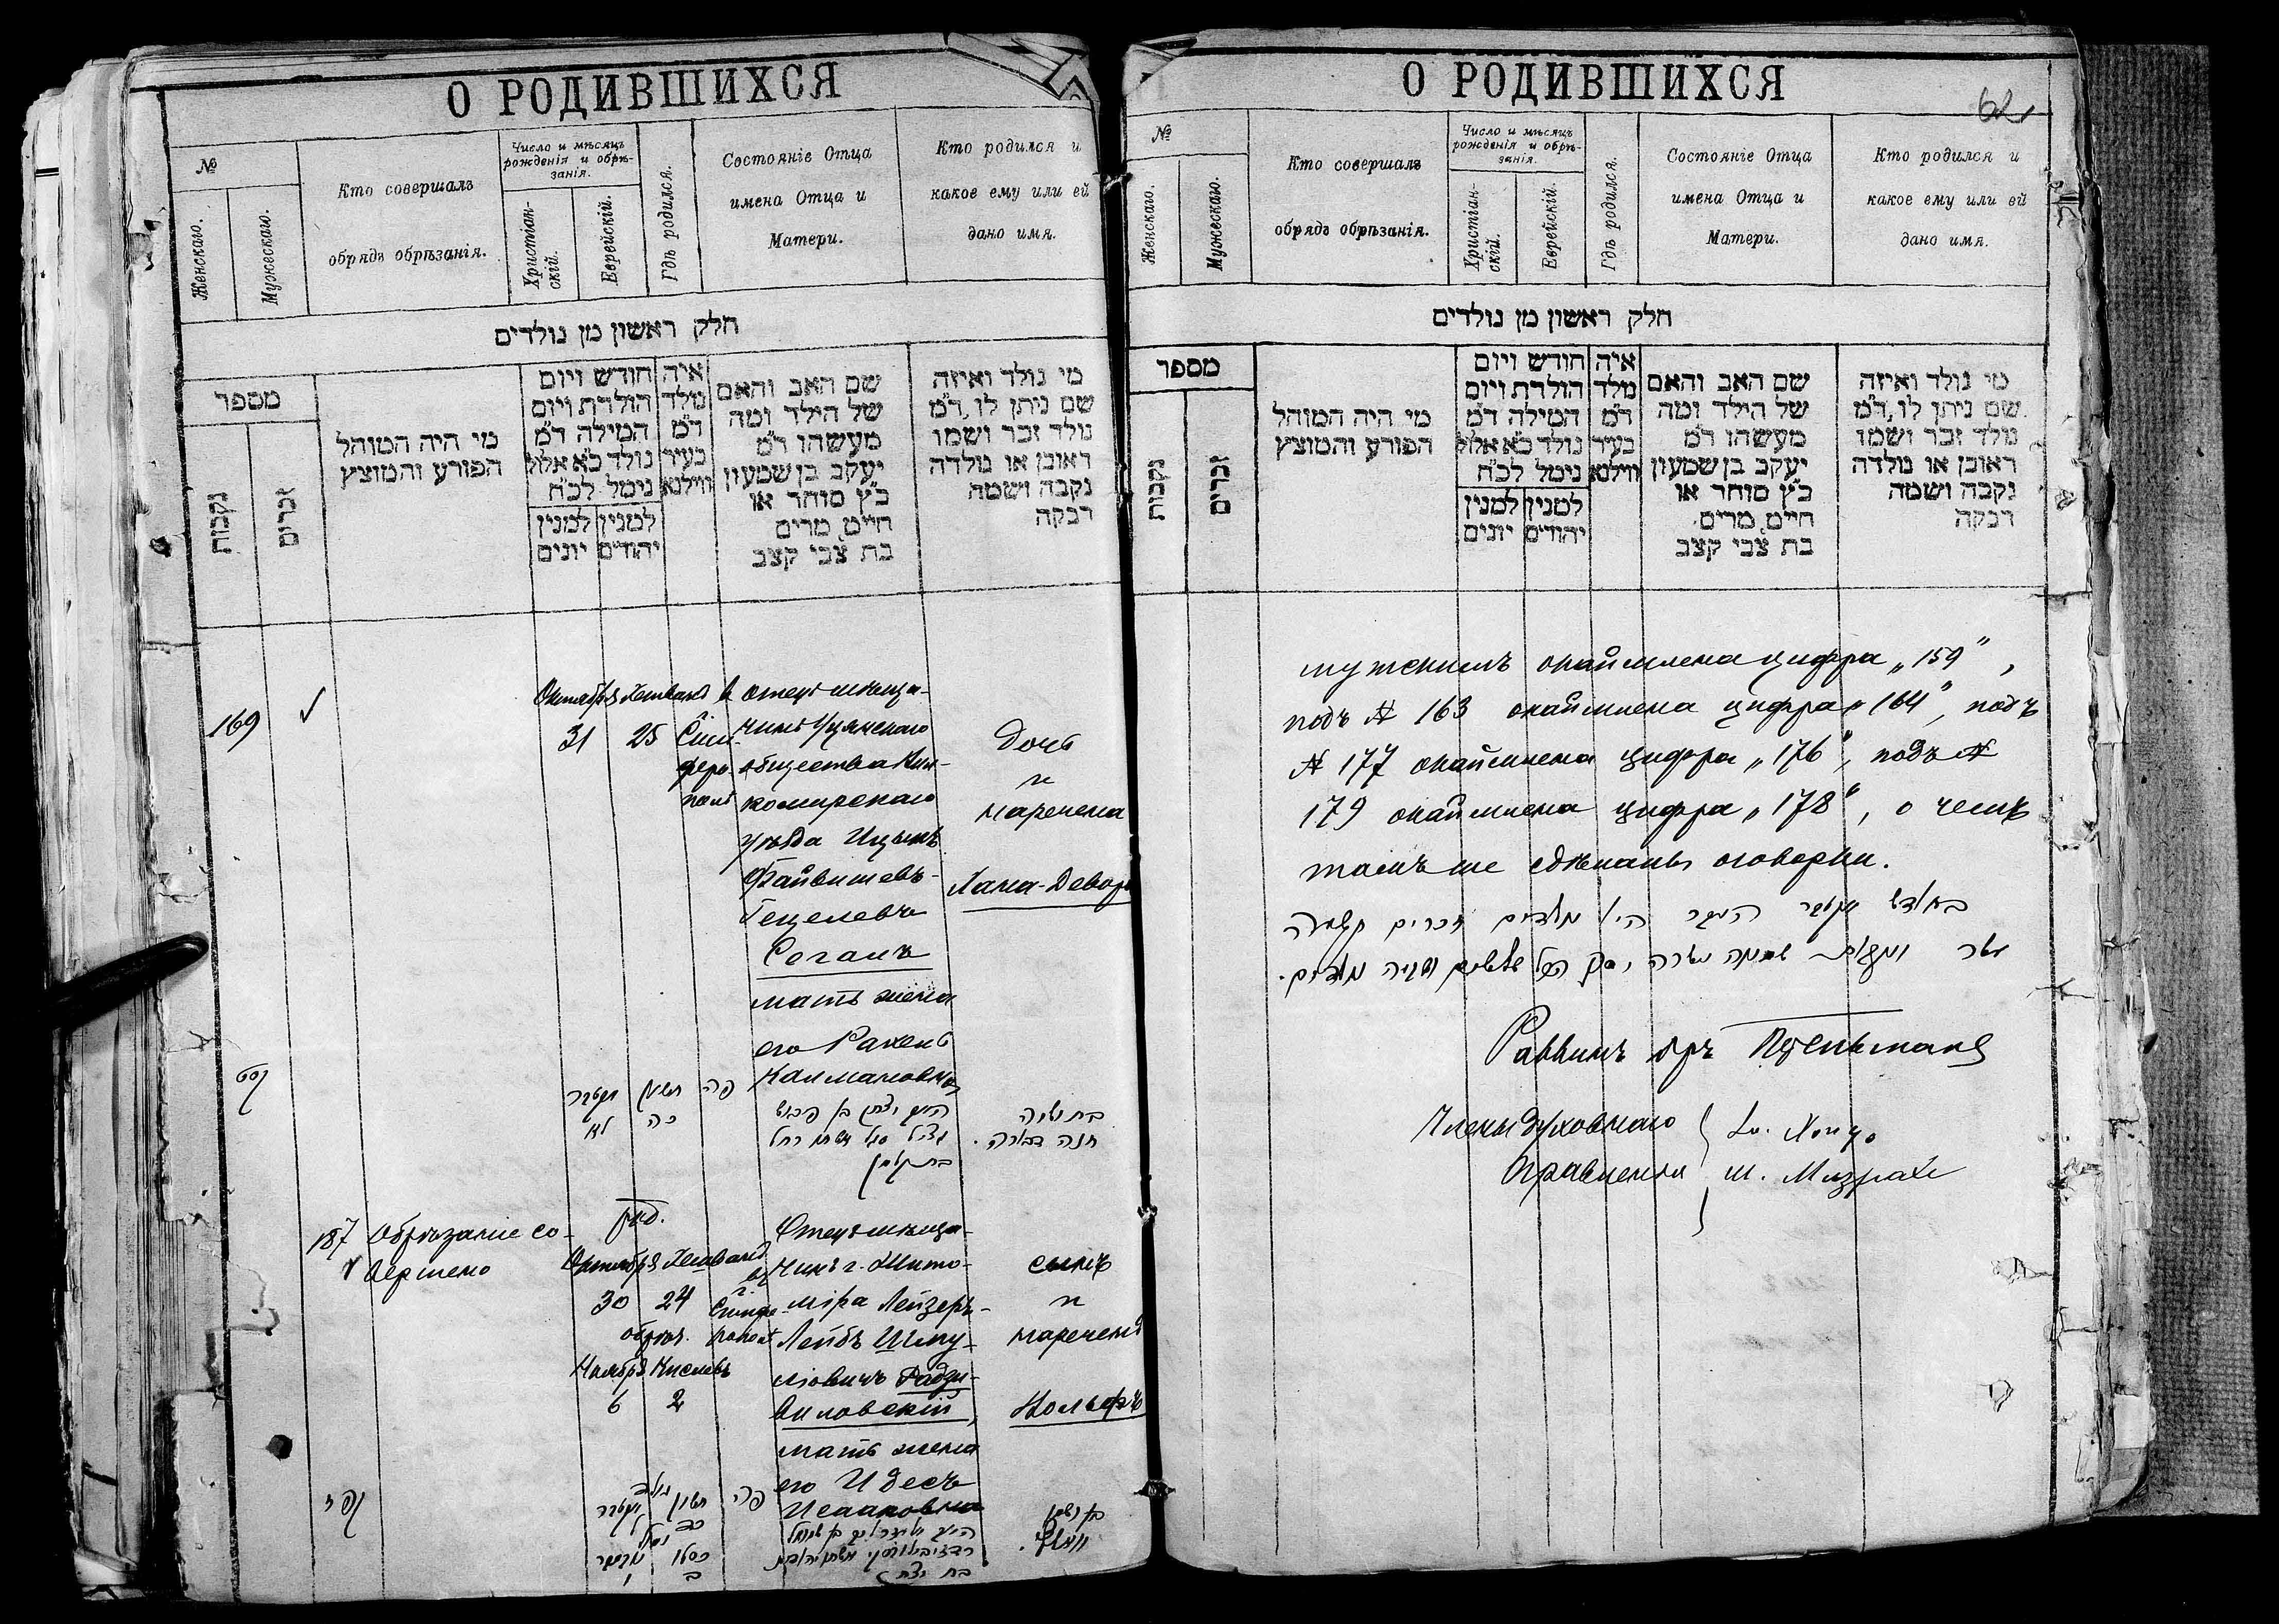 О РОДИВШИХСЯ
№
Женскаго.
Мужескаго.
Кто совершалъ
обрядъ обрѣзанія.
Число и мѣсяцъ
рожденія и обрѣ-
занія.
Христіан-
скій.
Еврейскій.
Гдѣ родился.
Состояніе Отца
имена Отца и
Матери.
Кто родился и
какое ему или ей
дано имя.
חלק ראשון מן נולדים
מספר
נקבות
זכרים
מי היה המוהל
הפורע והמוצץ
חודש ויום
הולדת ויום
המילה ד״מ
נולד כ״א אלול
נימול לכ״ח
למנין למנין
יהודים יונים
איה
מלד
ד״מ
בעיר
ווילנא
שם האב והאם
של הילד ומה
מעשהו ד״מ
יעקב בן שמעון
כ״ץ סוחר או
חייט מרים
בת צבי קצב
מי נולד ואיזה
שם ניתן לו, ד״מ
נולד זכר ושמו
ראובן או נולדה
נקבה ושמה
רבקה
169
Октября Хешвана
31 25
в г.
Симферо-
поль
Отецъ мѣща-
нинъ Уцянскаго
общества Вил-
комирскаго
уѣзда Ицыкъ
Файвишевъ-
Гецелевъ
Сегалъ
мать жена
его Рахель
Калмановна
Дочь
и
наречена
Хана-Девора
קסט
אקטабר
חשון
פה
לא
כה
בת ושמה
חנה דבורה.
187
Обрѣзаніе со-
вершено
рожд.
Октября Хешвана
30 24
обрѣз.
Ноября Кислевъ
6 2
въ
г. Симфе-
рополѣ
Отецъ мѣща-
нинъ г. Жито-
міра Лейзеръ-
Лейбъ Шму-
ліовичъ Радзи-
виловскій,
мать жена
его Идесъ
Исааковна
сынъ
и
нареченъ
Вольфъ
קפז
О РОДИВШИХСЯ
62
№
Женскаго.
Мужескаго.
Кто совершалъ
обрядъ обрѣзанія.
Число и мѣсяцъ
рожденія и обрѣ-
занія.
Христіан-
скій.
Еврейскій.
Гдѣ родился.
Состояніе Отца
имена Отца и
Матери.
Кто родился и
какое ему или ей
дано имя.
חלק ראשון מן נולדים
מספר
נקבות
זכרים
מי היה המוהל
הפורע והמוצץ
חודש ויום
הולדת ויום
המילה ד״מ
נולד כ״א אלול
נימול לכ״ח
למנין למנין
יהודים יונים
איה
מלד
ד״מ
בעיר
ווילנא
שם האב והאם
של הילד ומה
מעשהו ד״מ
יעקב בן שמעון
כ״ץ סוחר או
חייט, מרים
בת צבי קצב
מי נולד ואיזה
שם ניתן לו, ד״מ
נולד זכר ושמו
ראובן או נולדה
נקבה ושמה
רבקה
мужскимъ окаймлена цифра „159",
подъ № 163 окаймлена цифра „164", подъ
№ 177 окаймлена цифра „176", подъ №
179 окаймлена цифра „178", о чемъ
тамъ же сдѣланы оговорки.
Раввинъ
Члены Духовнаго
Правленія
Ш. Мизрахи